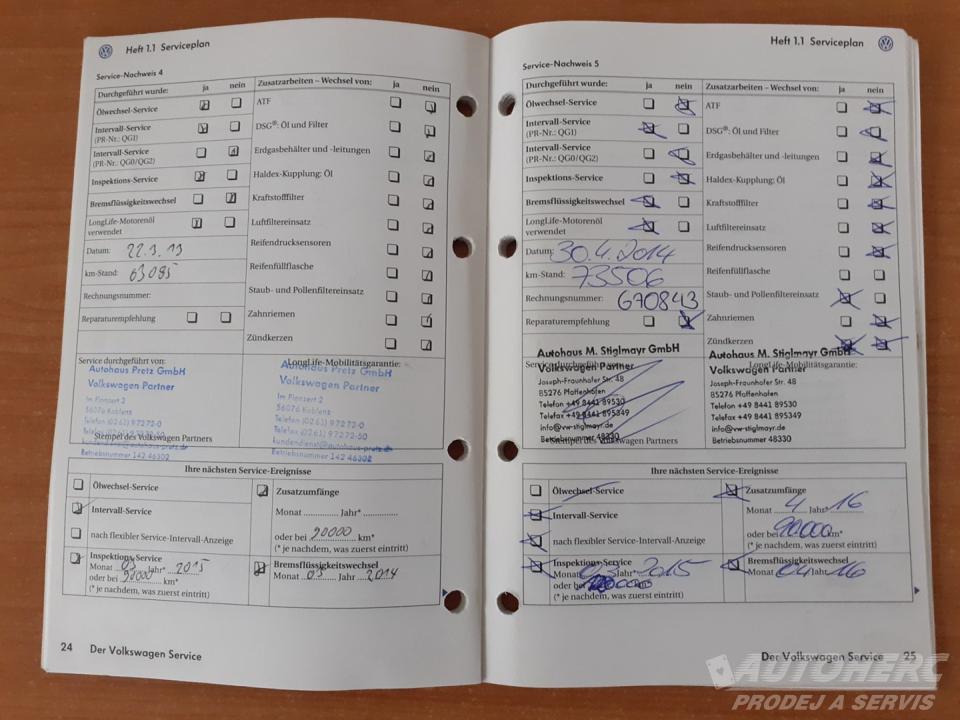 Heft 1.1 Serviceplan
Service-Nachweis 4
Durchgeführt wurde: ja nein
Ölwechsel-Service
Intervall-Service
(PR-Nr.: QG1)
Intervall-Service
(PR-Nr.: QG0/QG2)
Inspektions-Service
Bremsflüssigkeitswechsel
LongLife-Motorenöl
verwendet
Datum: 22.3.13
km-Stand: 63085
Rechnungsnummer:
Reparaturempfehlung
Zusatzarbeiten – Wechsel von: ja nein
ATF
DSG®: Öl und Filter
Erdgasbehälter und -leitungen
Haldex-Kupplung: Öl
Kraftstofffilter
Luftfiltereinsatz
Reifendrucksensoren
Reifenfüllflasche
Staub- und Pollenfiltereinsatz
Zahnriemen
Zündkerzen
Service durchgeführt von:
Autohaus Pretz GmbH
Volkswagen Partner
Im Planzert 2
56076 Koblenz
Telefon (0261) 97272-0
Telefax (0261) 97272-50
Stempel des Volkswagen Partners
Betriebsnummer 142 46302
LongLife-Mobilitätsgarantie:
Autohaus Pretz GmbH
Volkswagen Partner
Im Planzert 2
56076 Koblenz
Telefon (0261) 97272-0
Telefax (0261) 97272-50
kundendienst@autohaus-pretz.de
Betriebsnummer 142 46302
Ihre nächsten Service-Ereignisse
Ölwechsel-Service
Intervall-Service
nach flexibler Service-Intervall-Anzeige
Inspektions-Service
Monat 03 Jahr* 2015
oder bei 90000 km*
(* je nachdem, was zuerst eintritt)
Zusatzumfänge
Monat ........... Jahr* ...........
oder bei 90000 km*
(* je nachdem, was zuerst eintritt)
Bremsflüssigkeitswechsel
Monat 03 Jahr 2014
24 Der Volkswagen Service
Heft 1.1 Serviceplan
Service-Nachweis 5
Durchgeführt wurde: ja nein
Ölwechsel-Service
Intervall-Service
(PR-Nr.: QG1)
Intervall-Service
(PR-Nr.: QG0/QG2)
Inspektions-Service
Bremsflüssigkeitswechsel
LongLife-Motorenöl
verwendet
Datum: 30.4.2014
km-Stand: 73506
Rechnungsnummer: 670843
Reparaturempfehlung
Zusatzarbeiten – Wechsel von: ja nein
ATF
DSG®: Öl und Filter
Erdgasbehälter und -leitungen
Haldex-Kupplung: Öl
Kraftstofffilter
Luftfiltereinsatz
Reifendrucksensoren
Reifenfüllflasche
Staub- und Pollenfiltereinsatz
Zahnriemen
Zündkerzen
Autohaus M. Stiglmayr GmbH
Volkswagen Partner
Joseph-Fraunhofer Str. 48
85276 Pfaffenhofen
Telefon +49 8441 89530
Telefax +49 8441 895349
info@vw-stiglmayr.de
Betriebsnummer 48330
Stempel des Volkswagen Partners
Autohaus M. Stiglmayr GmbH
Volkswagen Partner
Joseph-Fraunhofer Str. 48
85276 Pfaffenhofen
Telefon +49 8441 89530
Telefax +49 8441 895349
info@vw-stiglmayr.de
Betriebsnummer 48330
Ihre nächsten Service-Ereignisse
Ölwechsel-Service
Intervall-Service
nach flexibler Service-Intervall-Anzeige
Inspektions-Service
Monat 03 Jahr* 2015
oder bei km*
(* je nachdem, was zuerst eintritt)
Zusatzumfänge
Monat 4 Jahr* 16
oder bei 90000 km*
(* je nachdem, was zuerst eintritt)
Bremsflüssigkeitswechsel
Monat 04 Jahr 16
Der Volkswagen Service 25
AUTOHERC
PRODEJ A SERVIS